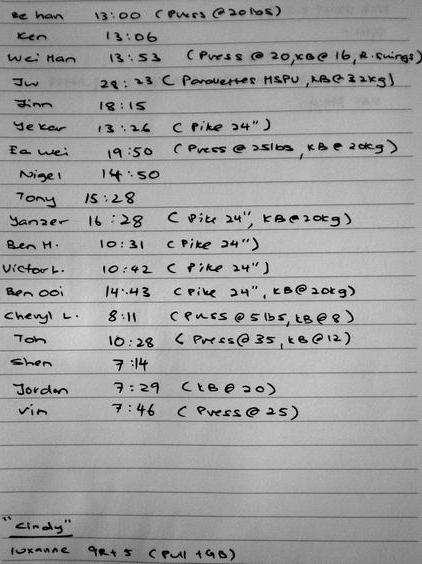 Re han 13:00 (Press @ 20lbs)
Ken 13:06
Wei Han 13:53 (Press @ 20, KB @ 16, R. swings)
Jw 28:23 (Parallettes HSPU, KB @ 32kg)
Jinn 18:15
Ye Kar 13:26 (Pike 24")
Ea Wei 19:50 (Press @ 25lbs, KB @ 20kg)
Nigel 14:50
Tony 15:28
Yanzer 16:28 (Pike 24", KB @ 20kg)
Ben H. 10:31 (Pike 24")
Victor L. 10:42 (Pike 24")
Ben Ooi 14:43 (Pike 24", KB @ 20kg)
Cheryl L. 8:11 (Press @ 5lbs, KB @ 8)
Toh 10:28 (Press @ 35, KB @ 12)
Shen 7:14
Jordan 7:29 (KB @ 20)
Vin 7:46 (Press @ 25)
"Cindy"
luxanne 9R+5 (Pull +GB)